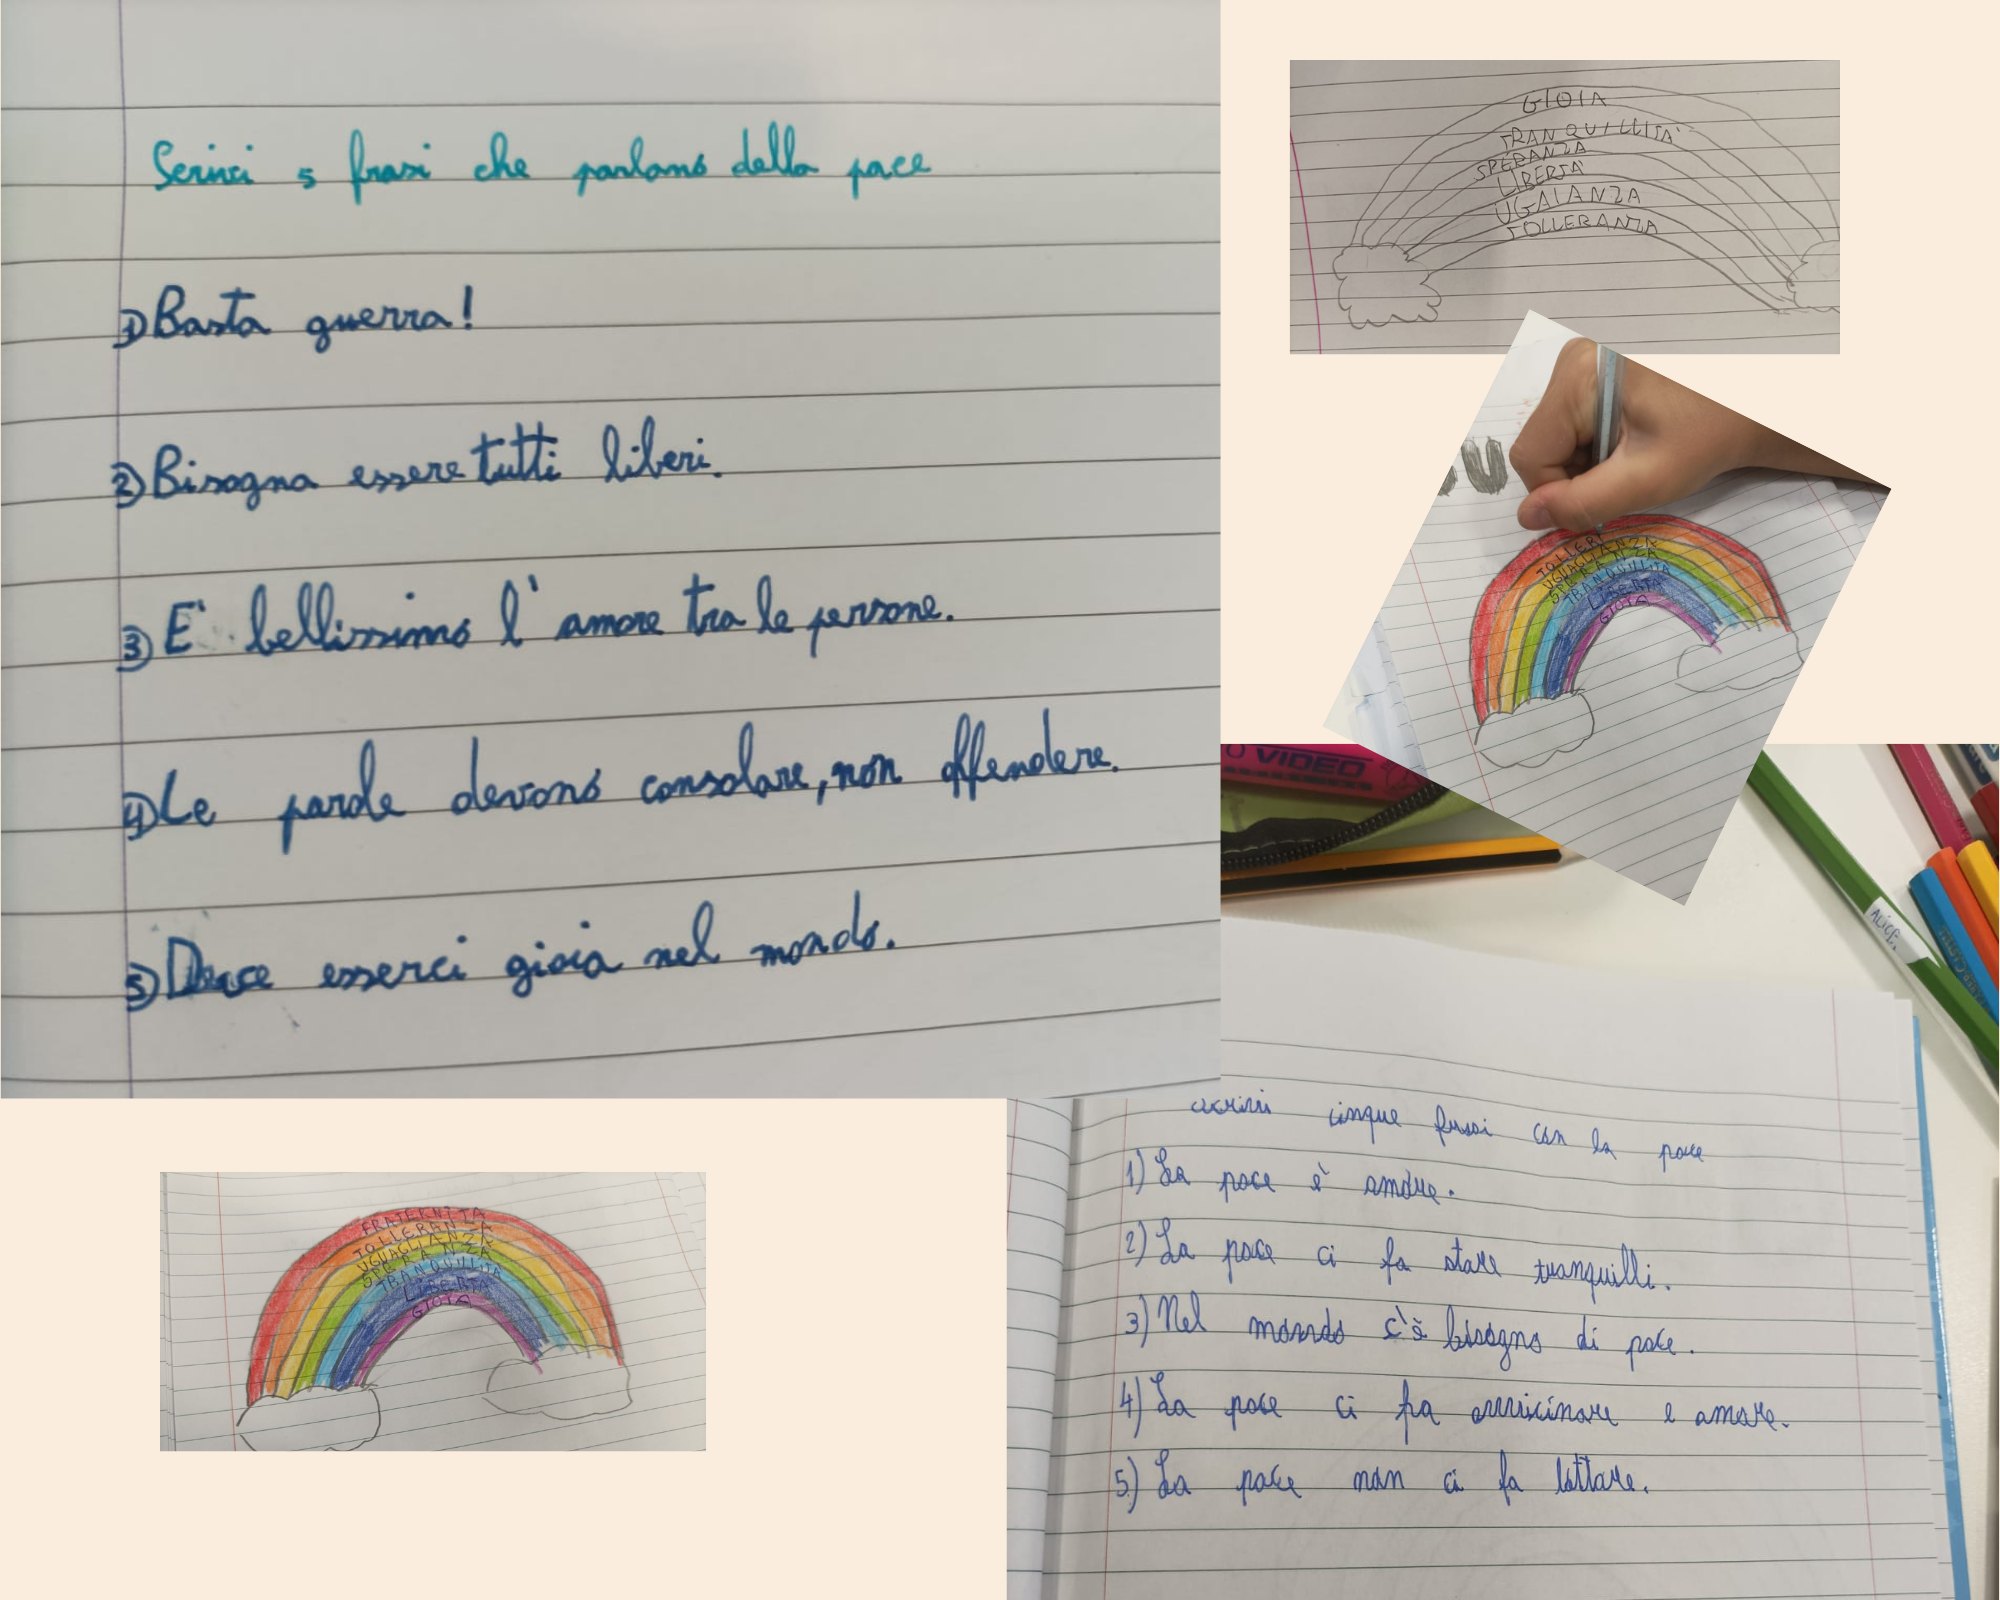 Scrivi 5 frasi che parlano della pace
1) Basta guerra!
2) Bisogna essere tutti liberi.
3) E' bellissimo l'amore tra le persone.
4) Le parole devono consolare, non offendere.
5) Deve esserci gioia nel mondo.
GIOIA
TRANQUILLITA'
SPERANZA
LIBERTA'
UGALANZA
TOLLERANZA
U
TOLLER
UGUAGLIANZA
SPERANZA
TRANQUILLITA
LIBERTA'
GIOIA
VIDEO
ALICE
FRATERNITA
TOLLERANZA
UGUAGLIANZA
SPERANZA
TRANQUILLITA
LIBERTA
GIOIA
scrivi cinque frasi con la pace
1) La pace è amore.
2) La pace ci fa stare tranquilli.
3) Nel mondo c'è bisogno di pace.
4) La pace ci fa avvicinare e amare.
5) La pace non ci fa lottare.